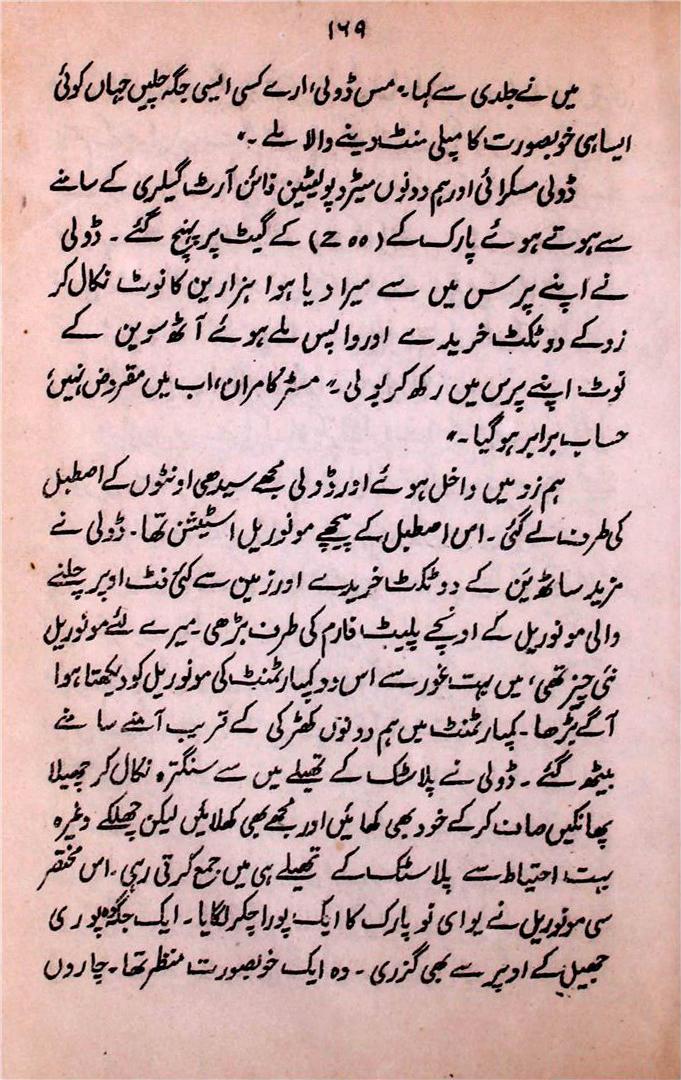 ۱۶۹
میں نے جلدی سے کہا۔ "مس ڈولی، ارے کسی ایسی جگہ چلیں جہاں کوئی
ایسا ہی خوبصورت کامپلی منٹ دینے والا ملے۔"
ڈولی مسکرائی اور ہم دونوں میٹروپولیٹین فائن آرٹ گیلری کے سامنے
سے ہوتے ہوئے پارک کے (zoo) کے گیٹ پر پہنچ گئے۔ ڈولی
نے اپنے پرس میں سے میرا دیا ہوا ہزارین کا نوٹ نکال کر
زو کے دو ٹکٹ خریدے اور واپس ملے ہوئے آٹھ سوین کے
نوٹ اپنے پرس میں رکھ کر بولی۔" مسٹر کامران، اب میں مقروض نہیں،
حساب برابر ہو گیا۔"
ہم زو میں داخل ہوئے اور ڈولی مجھے سیدھی اونٹوں کے اصطبل
کی طرف لے گئی۔ اس اصطبل کے پیچھے مونوریل اسٹیشن تھا۔ ڈولی نے
مزید ساٹھ یَن کے دو ٹکٹ خریدے اور زمین سے کئی فٹ اوپر چلنے
والی مونوریل کے اونچے پلیٹ فارم کی طرف بڑھی۔ میرے لئے مونوریل
نئی چیز تھی، میں بہت غور سے اس دو کمپارٹمنٹ کی مونوریل کو دیکھتا ہوا
آگے بڑھا۔ کمپارٹمنٹ میں ہم دونوں کھڑکی کے قریب آمنے سامنے
بیٹھ گئے۔ ڈولی نے پلاسٹک کے تھیلے میں سے سنگترہ نکال کر چھیلا
پھانکیں صاف کر کے خود بھی کھائیں اور مجھے بھی کھلائیں لیکن چھلکے وغیرہ
بہت احتیاط سے پلاسٹک کے تھیلے ہی میں جمع کرتی رہی۔ اس مختصر
سی مونوریل نے یوای نو پارک کا ایک پورا چکر لگایا۔ ایک جگہ وہ پوری
جھیل کے اوپر سے بھی گزری۔ وہ ایک خوبصورت منظر تھا۔ چاروں